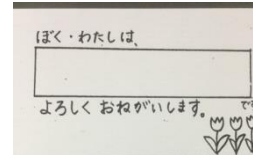 ぼく・わたしは、
よろしく おねがいします。
で